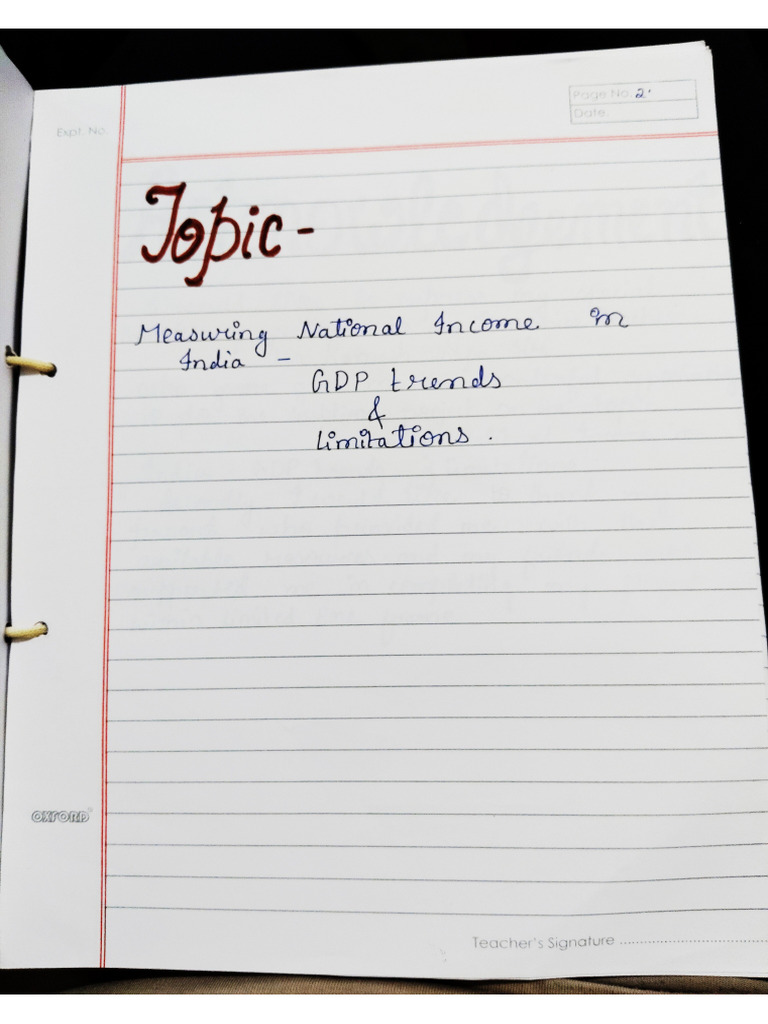 Expt. No.
Page No. 2.
Date
Topic -
Measuring National Income in
India -
GDP trends
&
Limitations.
OXFORD
Teacher's Signature ........................